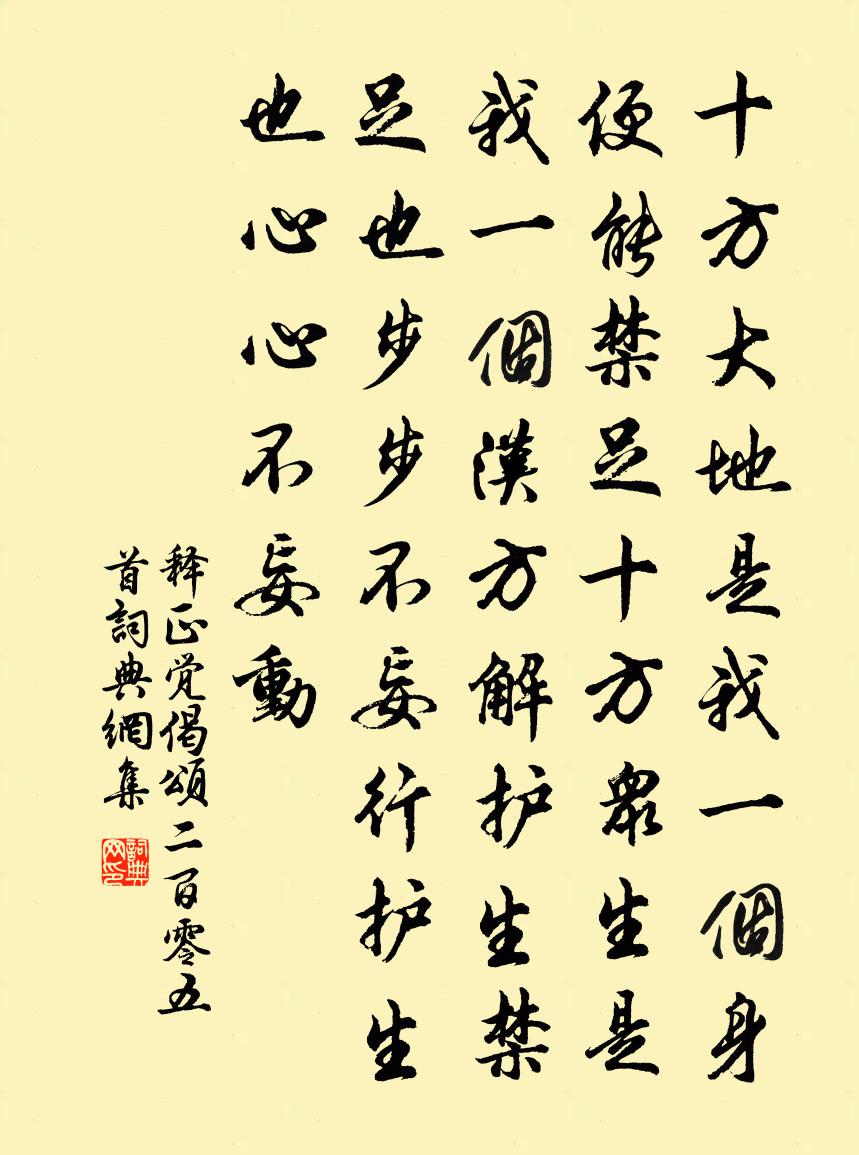 十方大地是我一個身
便能禁足十方眾生是
我一個漢方解护生禁
足也步步不妄行护生
也心心不妄動
释正覚偈頌二百零五
首詞典網集
詞典网印